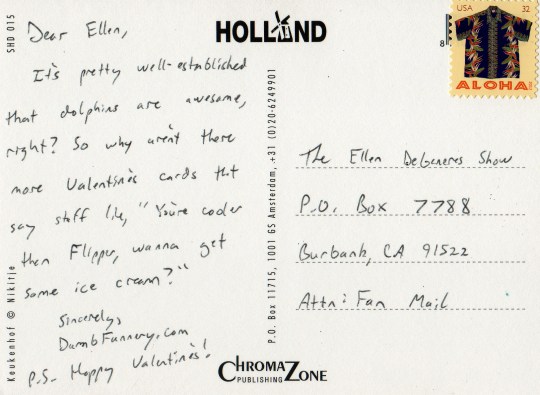 SHD 015
Dear Ellen,
It's pretty well-established
that dolphins are awesome,
right? So why aren't there
more Valentine's cards tht
say stuff like, "You're cooler
then Flipper, wanna get
some ice cream?"
Sincerely,
DumbFunnery.com
P.S. Happy Valentine's!
Keukenhof © Nikitje
HOLLAND
P.O. Box 11715, 1001 GS Amsterdam, +31 (0)20-6249901
CHROMAZONE
PUBLISHING
8
USA 32
ALOHA!
The Ellen DeGeneres Show
P.O. Box 7788
Burbank, CA 91522
Attn: Fan Mail